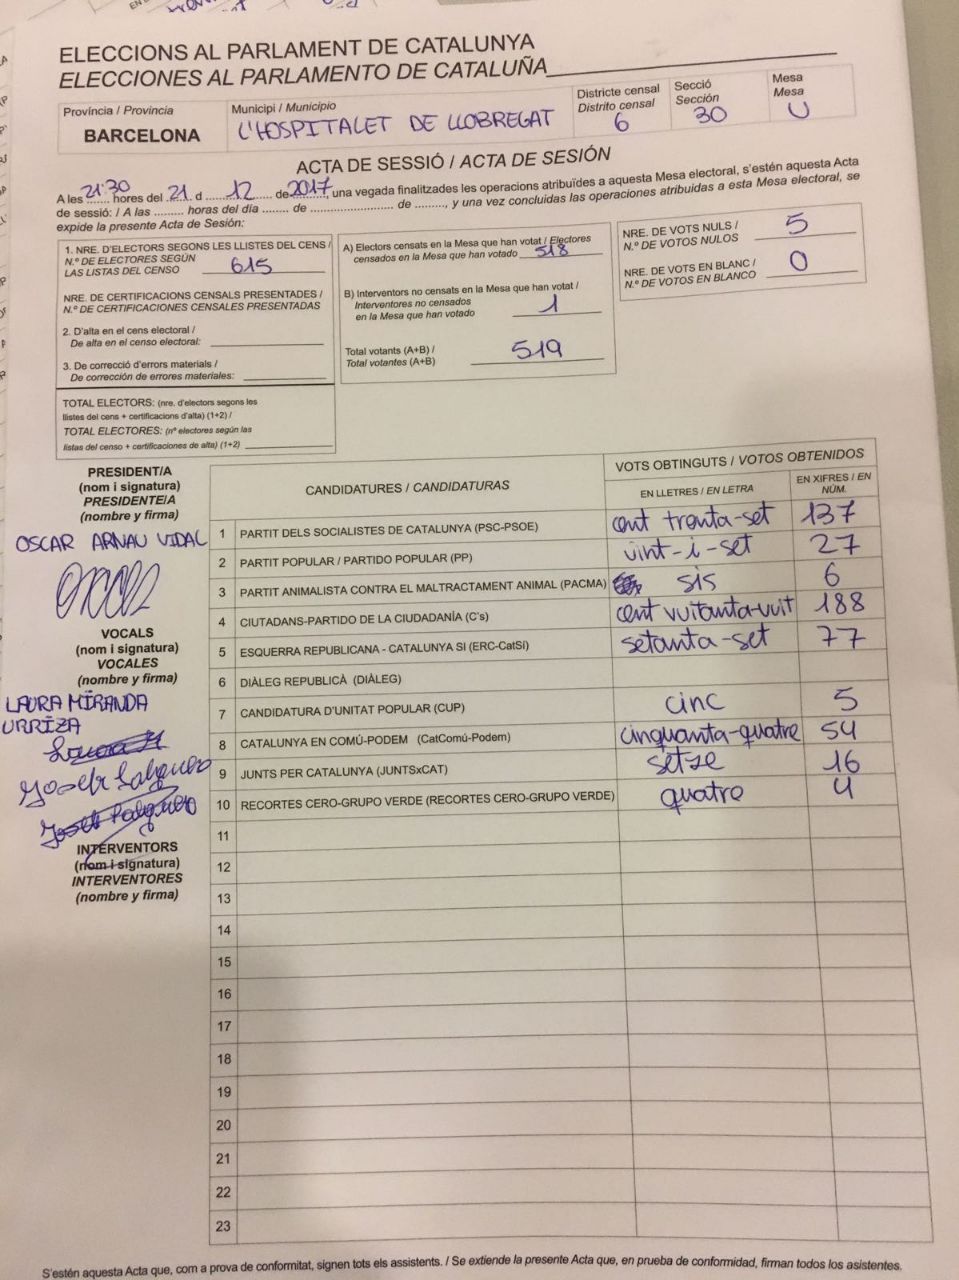 ELECCIONS AL PARLAMENT DE CATALUNYA
ELECCIONES AL PARLAMENTO DE CATALUÑA
Província / Provincia
BARCELONA
Municipi / Municipio
L'HOSPITALET DE LLOBREGAT
Districte censal
Distrito censal
6
Secció
Sección
30
Mesa
Mesa
U
ACTA DE SESSIÓ / ACTA DE SESIÓN
A les 21:30 hores del 21 d 12 de 2017, una vegada finalitzades les operacions atribuïdes a aquesta Mesa electoral, s'estén aquesta Acta
de sessió: / A las ......... horas del día ........ de ........................ de ........., y una vez concluidas las operaciones atribuidas a esta Mesa electoral, se
expide la presente Acta de Sesión:
1. NRE. D'ELECTORS SEGONS LES LLISTES DEL CENS /
N.º DE ELECTORES SEGÚN
LAS LISTAS DEL CENSO 615
NRE. DE CERTIFICACIONS CENSALS PRESENTADES /
N.º DE CERTIFICACIONES CENSALES PRESENTADAS
2. D'alta en el cens electoral /
De alta en el censo electoral:
3. De correcció d'errors materials /
De corrección de errores materiales:
TOTAL ELECTORS: (nre. d'electors segons les
llistes del cens + certificacions d'alta) (1+2) /
TOTAL ELECTORES: (nº electores según las
listas del censo + certificaciones de alta) (1+2)
A) Electors censats en la Mesa que han votat / Electores
censados en la Mesa que han votado 518
B) Interventors no censats en la Mesa que han votat /
Interventores no censados
en la Mesa que han votado 1
Total votants (A+B) /
Total votantes (A+B) 519
NRE. DE VOTS NULS /
N.º DE VOTOS NULOS 5
NRE. DE VOTS EN BLANC /
N.º DE VOTOS EN BLANCO 0
PRESIDENT/A
(nom i signatura)
PRESIDENTE/A
(nombre y firma)
OSCAR ARNAU VIDAL
VOCALS
(nom i signatura)
VOCALES
(nombre y firma)
LAURA MIRANDA
URRIZA
INTERVENTORS
(nom i signatura)
INTERVENTORES
(nombre y firma)
CANDIDATURES / CANDIDATURAS
VOTS OBTINGUTS / VOTOS OBTENIDOS
EN LLETRES / EN LETRA
EN XIFRES / EN NÚM.
1 PARTIT DELS SOCIALISTES DE CATALUNYA (PSC-PSOE) cent trenta-set 137
2 PARTIT POPULAR / PARTIDO POPULAR (PP) vint-i-set 27
3 PARTIT ANIMALISTA CONTRA EL MALTRACTAMENT ANIMAL (PACMA) sis 6
4 CIUTADANS-PARTIDO DE LA CIUDADANÍA (C's) cent vuitanta-vuit 188
5 ESQUERRA REPUBLICANA - CATALUNYA SI (ERC-CatSí) setanta-set 77
6 DIÀLEG REPUBLICÀ (DIÀLEG)
7 CANDIDATURA D'UNITAT POPULAR (CUP) cinc 5
8 CATALUNYA EN COMÚ-PODEM (CatComú-Podem) cinquanta-quatre 54
9 JUNTS PER CATALUNYA (JUNTSxCAT) setze 16
10 RECORTES CERO-GRUPO VERDE (RECORTES CERO-GRUPO VERDE) quatre 4
11
12
13
14
15
16
17
18
19
20
21
22
23
S'estén aquesta Acta que, com a prova de conformitat, signen tots els assistents. / Se extiende la presente Acta que, en prueba de conformidad, firman todos los asistentes.